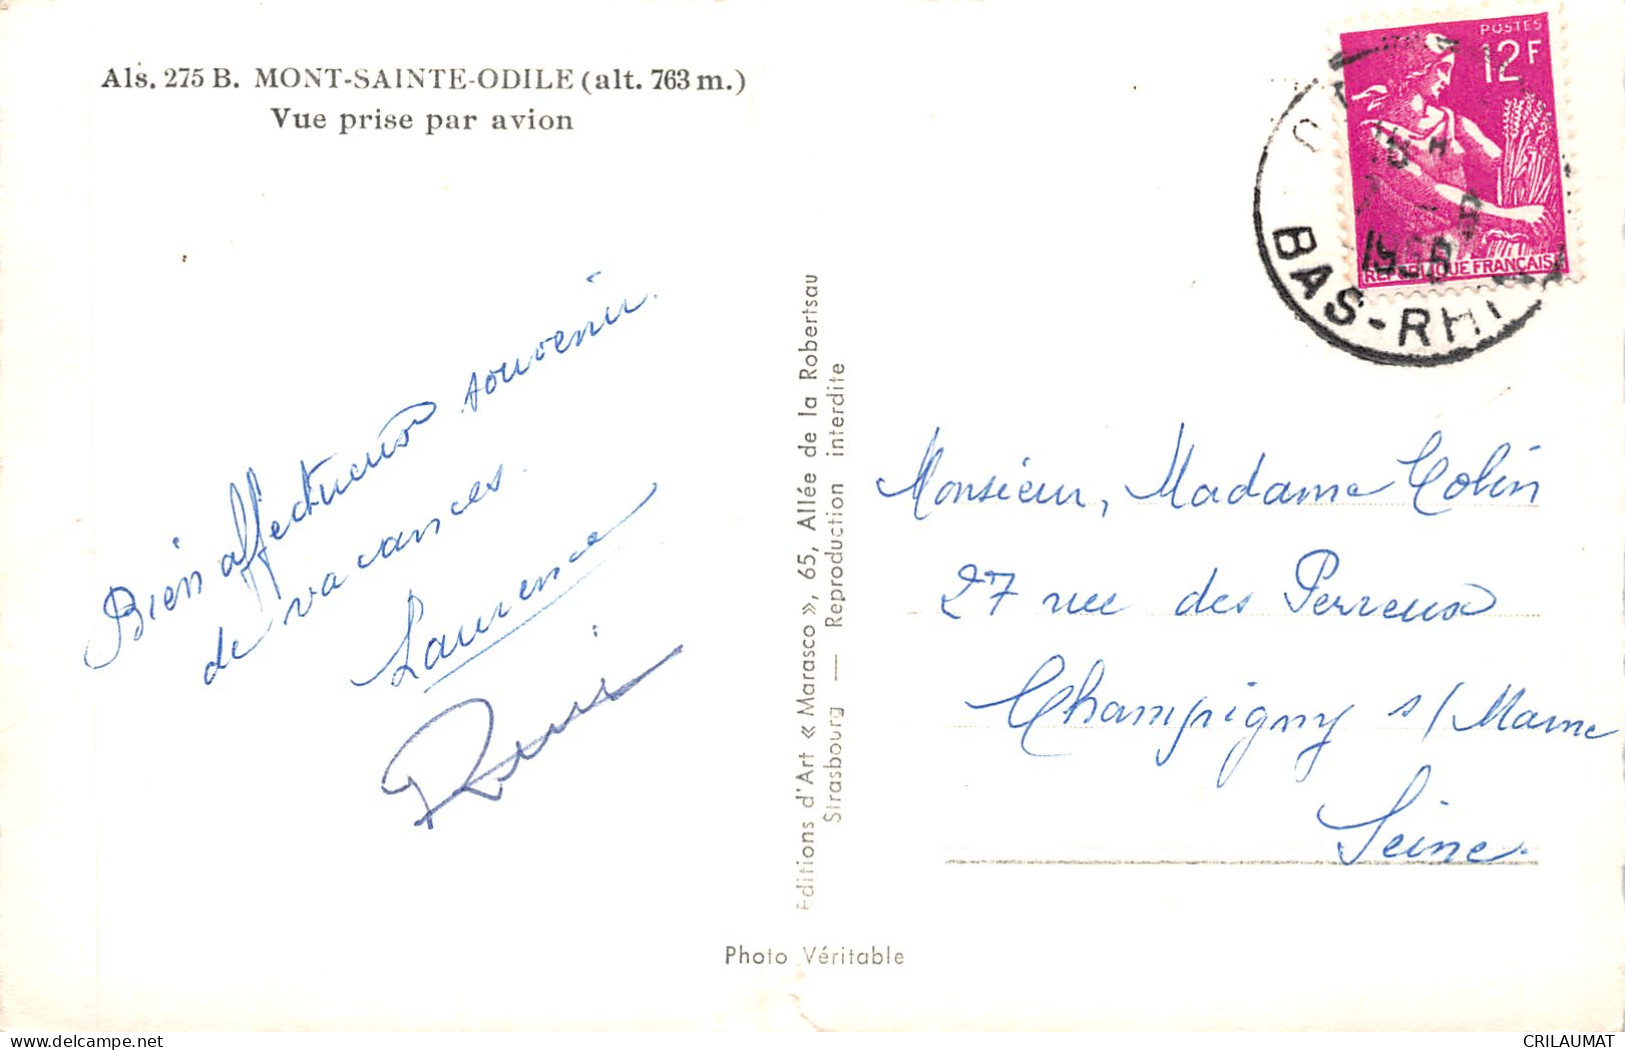 Als. 275 B. MONT-SAINTE-ODILE (alt. 763 m.)
Vue prise par avion
Bien affectueux souvenir
de vacances.
Laurence
Rémi
Editions d'Art « Marasco », 65, Allée de la Robertsau
Strasbourg — Reproduction interdite
Photo Véritable
POSTES
12F
REPUBLIQUE FRANÇAISE
BAS-RHIN
Monsieur, Madame Colin
27 rue des Perreux
Champigny s/Marne
Seine.
CRILAUMAT